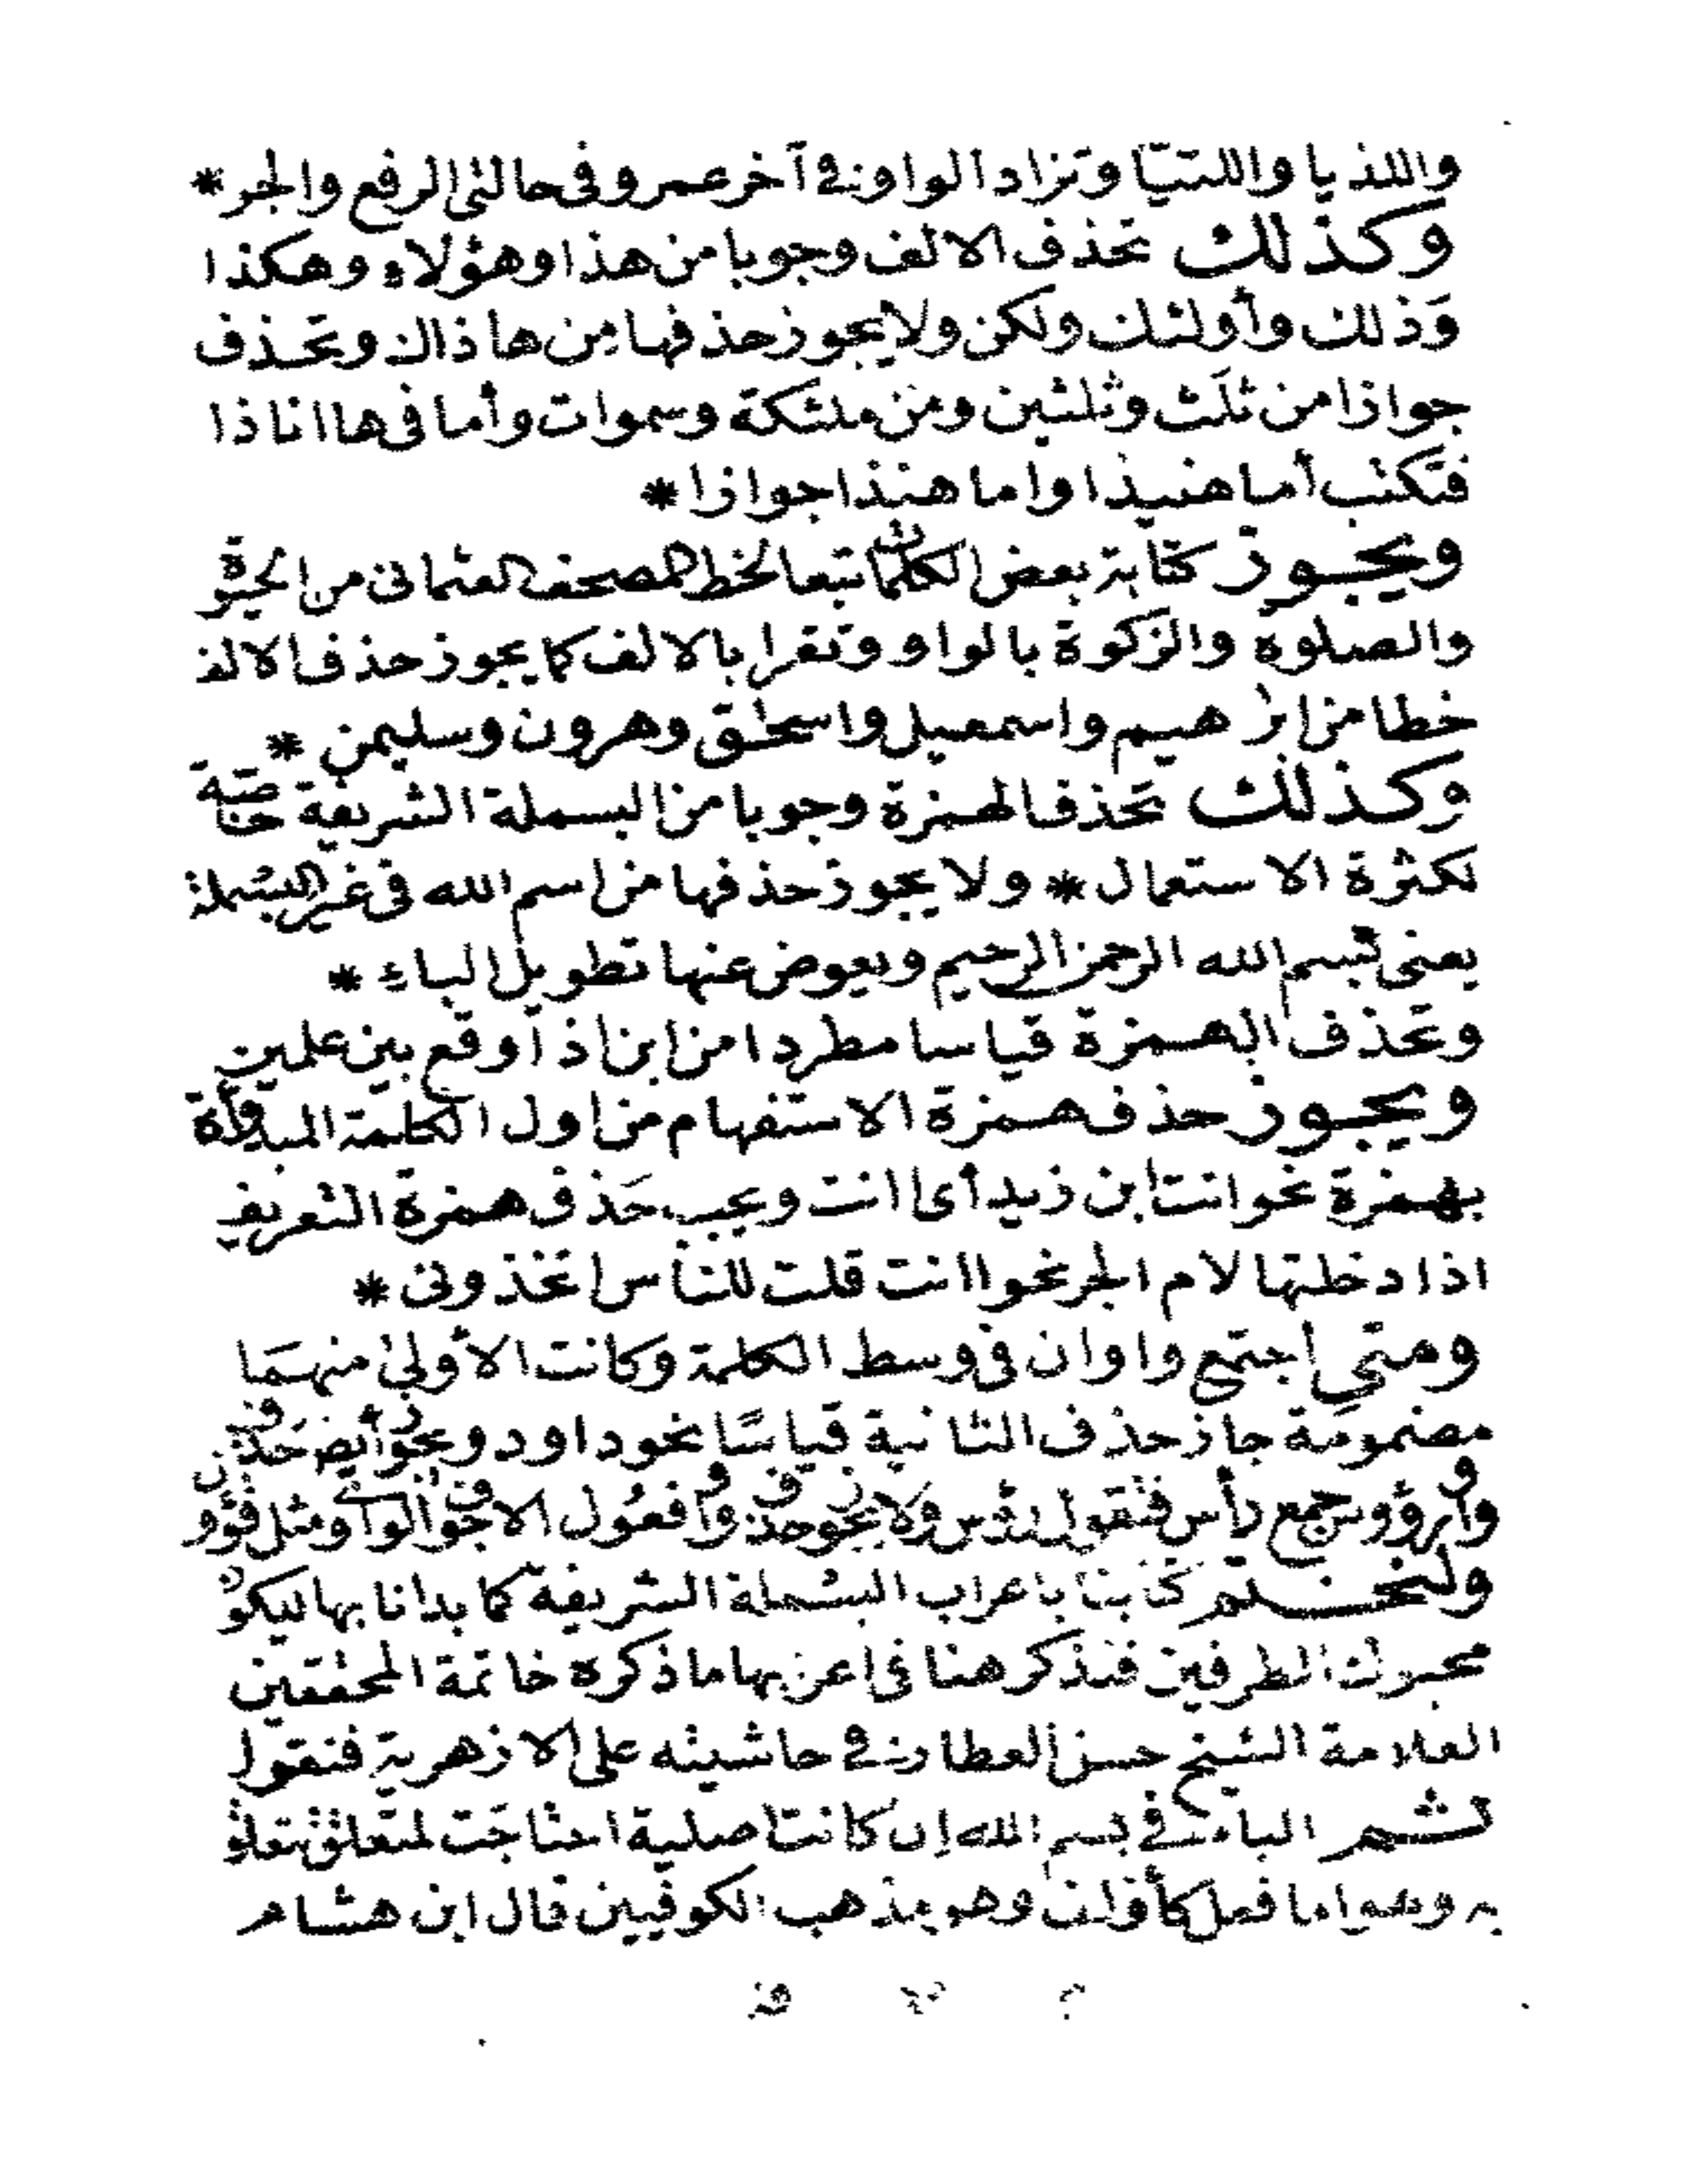 واللذيا واللتيّا وتزاد الواو في آخر عمرو في حالتي الرفع والجر *
وكذلك تحذف الالف وجوبا من هذا وهؤلاء وهكذا
وَذلك وأولئك ولكن ولا يجوز حذفها من هاذاك وتحذف
جوازا من ثلَث وثلثين ومن ملئكة وسموات وأما في هاانا ذا
فتكتب أما هنيذا واما هنذا جوازا *
ويجوز كتابة بعض الكلمات تبعا لخط المصحف العثماني من الحيوة
والصلوة والزكوة بالواو وتقرا بالالف كما يجوز حذف الالف
خطا من ابرهيم واسمعيل واسحق وهرون وسليمن *
وكذلك تحذف الهمزة وجوبا من البسملة الشريفة خاصّة
لكثرة الاستعمال * ولا يجوز حذفها من اسم الله في غير البسملة
يعني بسم الله الرحمن الرحيم ويعوض عنها تطويل الباء *
وتحذف الهمزة قياسا مطردا من ابن اذا وقع بين علمين
ويجوز حذف همزة الاستفهام من اول الكلمة المبدوأة
بهمزة نحو انت ابن زيد أى اانت ويجب حَذف همزة التعريف
اذا دخلتها لام الجر نحو اانت قلت للناس اتخذوني *
ومتى اجتمع واوان في وسط الكلمة وكانت الأولى منهما
مضمومة جاز حذف الثانية قياسًا نحو داود ويجوز أيضا حَذف
واو رؤوس جمع رأس فتقول رؤس ولا يجوز حذف واو فعُول الاجوف الواوى ومثل قؤول
ولنختتم كتابنا باعراب البسملة الشريفة كما بدانا بها ليكون
محبوك الطرفين فنذكر هنا في اعرابها ما ذكره خاتمة المحققين
العلامة الشيخ حسن العطار في حاشيته على الازهرية فنقول
ثم الباء في بسم الله ان كانت اصلية احتاجَت لمتعلق تتعلق
به وهو اما فعل كأؤلف وهو مذهب الكوفيين قال ابن هشام